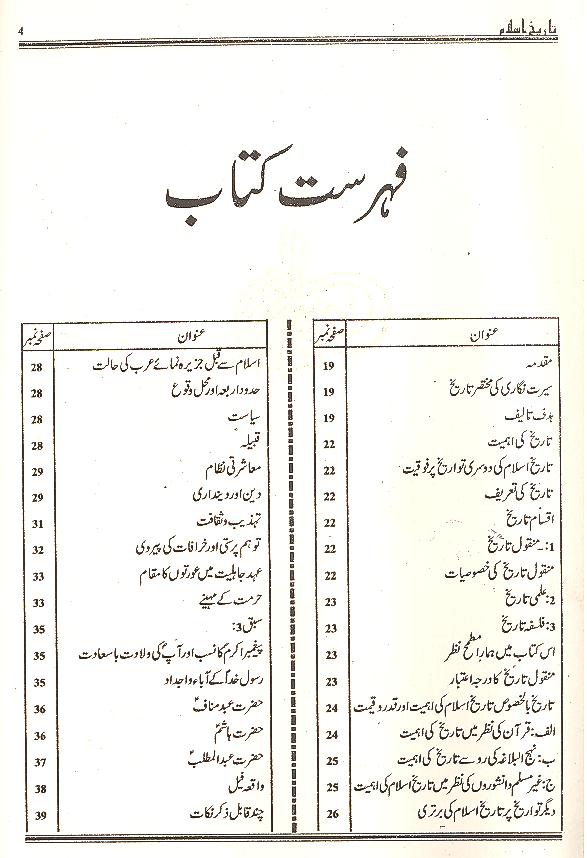 تاریخ اسلام 4
فہرست کتاب
عنوان صفحہ نمبر
مقدمہ 19
سیرت نگاری کی مختصر تاریخ 19
ہدف تالیف 19
تاریخ کی اہمیت 22
تاریخ اسلام کی دوسری تواریخ پر فوقیت 22
تاریخ کی تعریف 22
اقسام تاریخ 22
1:۔ منقول تاریخ 22
منقول تاریخ کی خصوصیات 22
2: علمی تاریخ 23
3: فلسفہ تاریخ 23
اس کتاب میں ہمارا مطمح نظر 23
منقول تاریخ کا درجہ اعتبار 23
تاریخ بالخصوص تاریخ اسلام کی اہمیت اور قدر و قیمت 24
الف: قرآن کی نظر میں تاریخ کی اہمیت 24
ب: نہج البلاغہ کی رو سے تاریخ کی اہمیت 25
ج: غیر مسلم دانشوروں کی نظر میں تاریخ اسلام کی اہمیت 25
دیگر تواریخ پر تاریخ اسلام کی برتری 26
عنوان صفحہ نمبر
اسلام سے قبل جزیرہ نمائے عرب کی حالت 28
حدود اربعہ اور محل وقوع 28
سیاست 28
قبیلہ 28
معاشرتی نظام 29
دین اور دینداری 29
تہذیب و ثقافت 31
توہم پرستی اور خرافات کی پیروی 32
عہد جاہلیت میں عورتوں کا مقام 33
حرمت کے مہینے 33
سبق 3: 35
پیغمبر اکرم کا نسب اور آپؐ کی ولادت باسعادت 35
رسول خداؐ کے آباء و اجداد 35
حضرت عبد منافؑ 36
حضرت ہاشمؑ 36
حضرت عبدالمطلبؑ 37
واقعہ فیل 38
چند قابل ذکر نکات 39